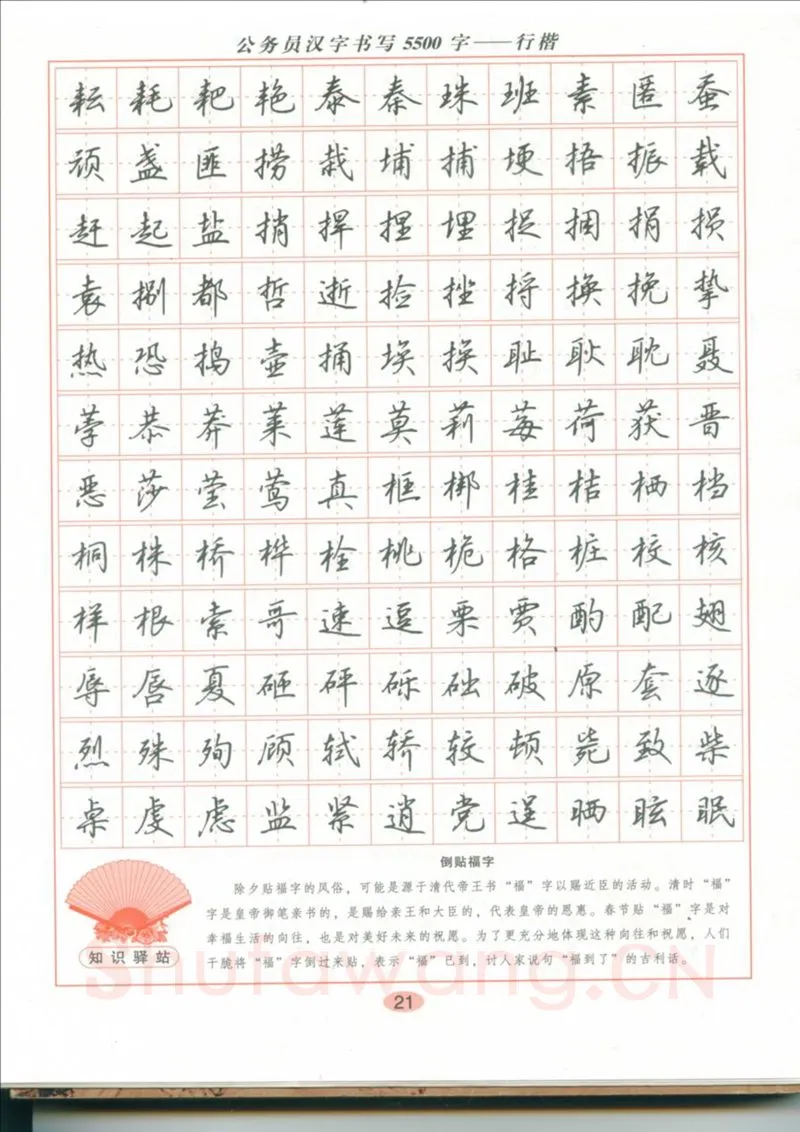 公务员汉字书写5500字——行楷
耘耗耙艳泰秦珠班素匿蚕
顽盏匪捞栽埔捕埂捂振载
赶起盐捎捍捏埋捉捆捐损
袁捌都哲逝捡挫捋换挽挚
热恐捣壶捅埃挨耻耿耽聂
荸恭莽莱莲莫莉莓荷获晋
恶莎莹莺真框梆桂桔栖档
桐株桥桦栓桃桅格桩校核
样根索哥速逗栗贾酌配翅
辱唇夏砸砰砾础破原套逐
烈殊殉顾轼轿较顿毙致柴
桌虔虑监紧逍党逞晒眩眠
倒贴福字
除夕贴福字的风俗，可能是源于清代帝王书“福”字以赐近臣的活动。清时“福”
字是皇帝御笔亲书的，是赐给亲王和大臣的，代表皇帝的恩惠。春节贴“福”字是对
幸福生活的向往，也是对美好未来的祝愿。为了更充分地体现这种向往和祝愿，人们
干脆将“福”字倒过来贴，表示“福”已到，讨人家说句“福到了”的吉利话。
知识驿站
Shufawang.CN
21